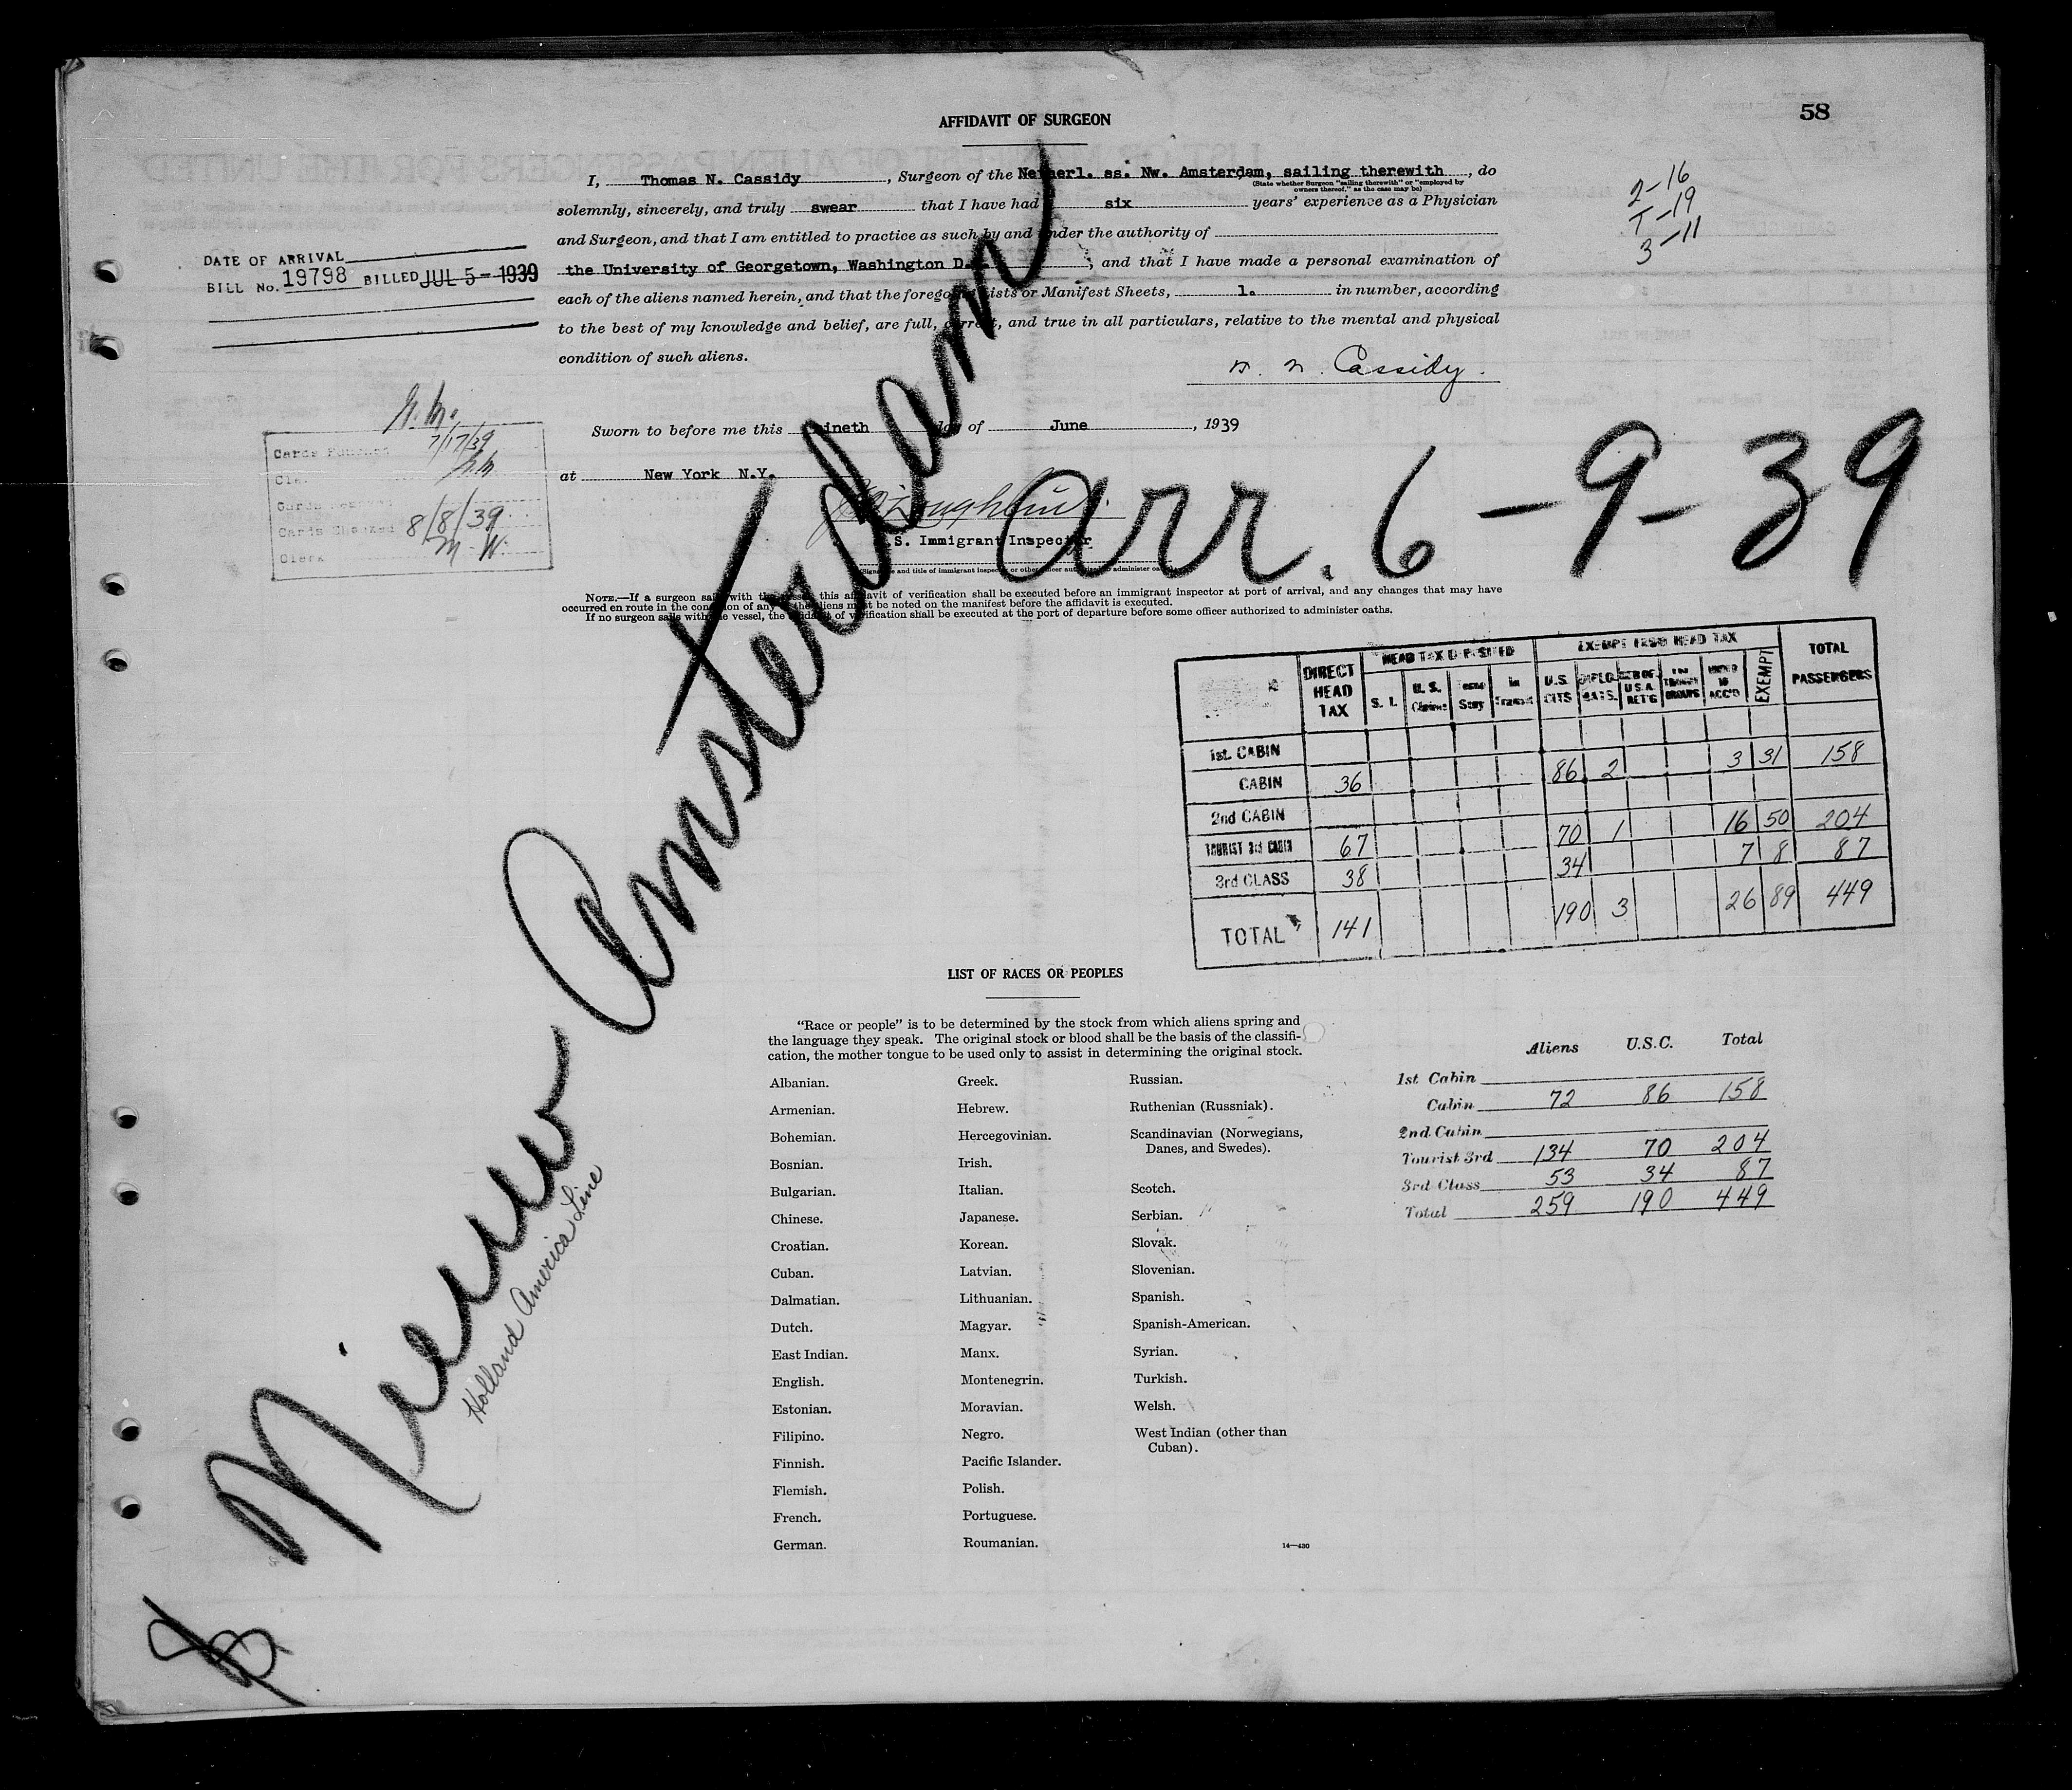 58
AFFIDAVIT OF SURGEON
I, Thomas N. Cassidy, Surgeon of the Netherl. ss. Nw. Amsterdam, sailing therewith, do
(State whether Surgeon "sailing therewith" or "employed by
owners thereof," as the case may be)
solemnly, sincerely, and truly swear that I have had six years' experience as a Physician
and Surgeon, and that I am entitled to practice as such by and under the authority of
the University of Georgetown, Washington D.C., and that I have made a personal examination of
each of the aliens named herein, and that the foregoing Lists or Manifest Sheets, 1. in number, according
to the best of my knowledge and belief, are full, correct, and true in all particulars, relative to the mental and physical
condition of such aliens.
N. Cassidy.
2-16
T-19
3-11
DATE OF ARRIVAL
BILL No. 19798 BILLED JUL 5-1939
Sworn to before me this nineth day of June, 1939
at New York N.Y.
U.S. Immigrant Inspector
(Signature and title of immigrant inspector or other officer authorized to administer oaths)
7/17/39
Cards Punched
Clerk
Cards Checked 8/8/39
Clerk M.W.
Arr. 6-9-39
NOTE.—If a surgeon sails with the vessel, this affidavit of verification shall be executed before an immigrant inspector at port of arrival, and any changes that may have
occurred en route in the condition of any of the aliens must be noted on the manifest before the affidavit is executed.
If no surgeon sails with the vessel, the affidavit of verification shall be executed at the port of departure before some officer authorized to administer oaths.
Nieuw Amsterdam
Holland America Line
DIRECT HEAD TAX HEAD TAX DEPOSITED EXEMPT FROM HEAD TAX TOTAL PASSENGERS
S. I. U. S. Temp Stay In Transit U.S. CITS DIPLO MATS. RES OF U.S.A. RET'G UNDER 16 ACC'D EXEMPT
1st. CABIN
CABIN 36 86 2 3 31 158
2nd CABIN
TOURIST 3rd CABIN 67 70 1 16 50 204
3rd CLASS 38 34 7 8 87
TOTAL 141 190 3 26 89 449
LIST OF RACES OR PEOPLES
"Race or people" is to be determined by the stock from which aliens spring and
the language they speak. The original stock or blood shall be the basis of the classifi-
cation, the mother tongue to be used only to assist in determining the original stock.
Albanian.
Armenian.
Bohemian.
Bosnian.
Bulgarian.
Chinese.
Croatian.
Cuban.
Dalmatian.
Dutch.
East Indian.
English.
Estonian.
Filipino.
Finnish.
Flemish.
French.
German.
Greek.
Hebrew.
Hercegovinian.
Irish.
Italian.
Japanese.
Korean.
Latvian.
Lithuanian.
Magyar.
Manx.
Montenegrin.
Moravian.
Negro.
Pacific Islander.
Polish.
Portuguese.
Roumanian.
Russian.
Ruthenian (Russniak).
Scandinavian (Norwegians,
Danes, and Swedes).
Scotch.
Serbian.
Slovak.
Slovenian.
Spanish.
Spanish-American.
Syrian.
Turkish.
Welsh.
West Indian (other than
Cuban).
14—430
Aliens U.S.C. Total
1st Cabin
Cabin 72 86 158
2nd Cabin
Tourist 3rd 134 70 204
3rd Class 53 34 87
Total 259 190 449